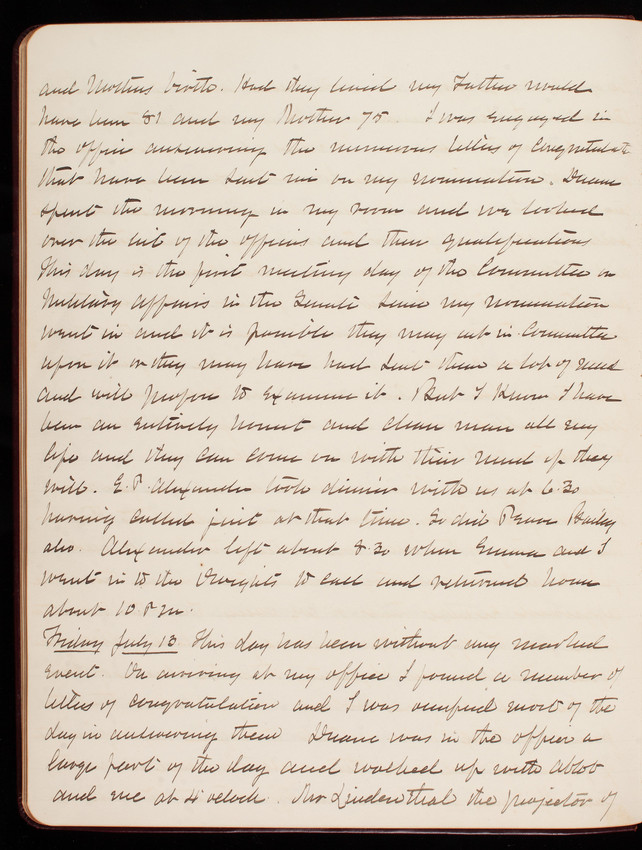 and Mothers birth. Had they lived my Father would
have been 81 and my Mother 75. I was engaged in
the office answering the numerous letters of congratulat
that have been sent me on my nomination. Duane
spent the morning in my room and we looked
over the list of the officers and their qualifications
This day is the first meeting day of the Committee on
Military Affairs in the Senate since my nomination
went in and it is possible they may act in Committee
upon it or they may have had sent them a lot of mud
and will propose to examine it. But I know I have
been an entirely honest and clean man all my
life and they can come on with their mud if they
will. E.P. Alexander took dinner with us at 6.30
having called just at that time. So did Bailey
also. Alexander left about 8.30 when Emma and I
went in to the Wrights to call and returned home
about 10 P.M.
Friday July 13 This day has been without any marked
event. On arriving at my office I found a number of
letters of congratulation and I was occupied most of the
day in answering them Duane was in the office a
large part of the day and walked up with Abbot
and me at 4 oclock. Mr Lindenthal the projector of